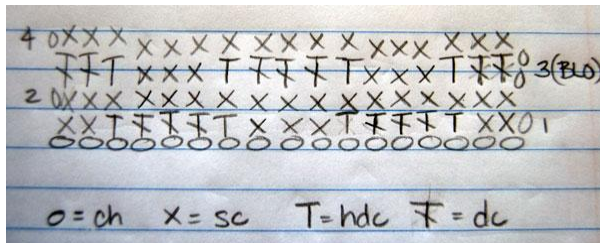 4 0XXXXXXXXXXXXXXXXX
ŦŦTXXXTŦŦŦTXXXTŦŦ00 3(BLO)
2 0XXXXXXXXXXXXXXXXX
XXTŦŦŦTXXXTŦŦŦTXX0 1
00000000000000000
o = ch X = sc T = hdc Ŧ = dc